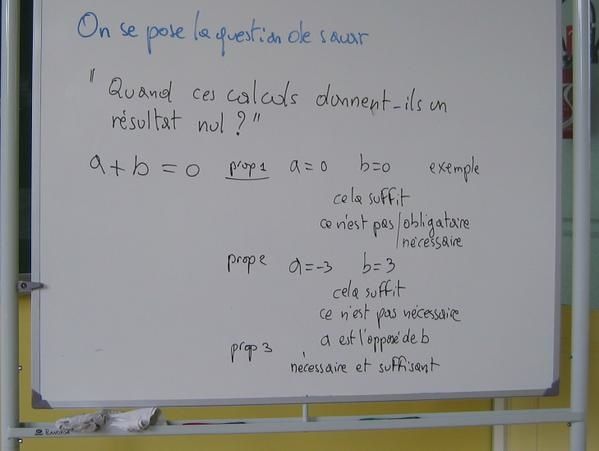 On se pose la question de savoir
"Quand ces calculs donnent-ils un
résultat nul ?"
a + b = 0 prop 1 a = 0 b = 0 exemple
cela suffit
ce n'est pas / obligatoire
nécessaire
prop 2 a = -3 b = 3
cela suffit
ce n'est pas nécessaire
prop 3 a est l'opposé de b
nécessaire et suffisant